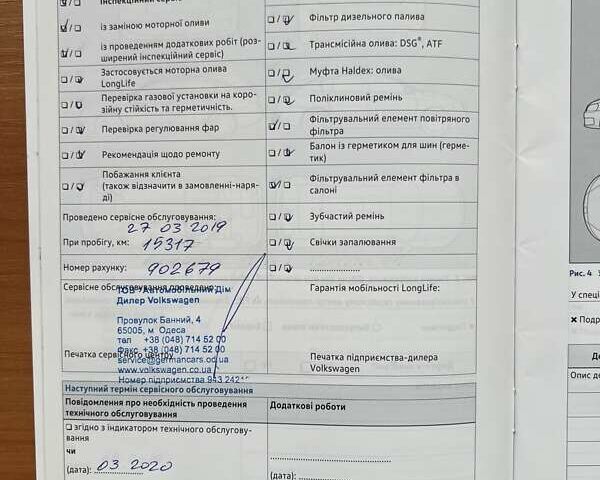 інспекційний сервіс)
із заміною моторної оливи
із проведенням додаткових робіт (роз-
ширений інспекційний сервіс)
Застосовується моторна олива
LongLife
Перевірка газової установки на коро-
зійну стійкість та герметичність.
Перевірка регулювання фар
Рекомендація щодо ремонту
Побажання клієнта
(також відзначити в замовленні-наря-
ді)
Фільтр дизельного палива
Трансмісійна олива: DSG®, ATF
Муфта Haldex: олива
Поліклиновий ремінь
Фільтрувальний елемент повітряного
фільтра
Балон із герметиком для шин (герме-
тик)
Фільтрувальний елемент фільтра в
салоні
Зубчастий ремінь
Свічки запалювання
Проведено сервісне обслуговування:
27 03 2019
При пробігу, км: 15317
Номер рахунку: 902679
Сервісне обслуговування проведено:
ТОВ "Автомобільний Дім
Дилер Volkswagen
Провулок Банний, 4
65005, м. Одеса
тел +38 (048) 714 52 00
Факс +38 (048) 714 52 00
service@germancars.od.ua
www.volkswagen.co.ua
Номер підприємства 943 242
Печатка сервісного центру
Гарантія мобільності LongLife:
Печатка підприємства-дилера
Volkswagen
Наступний термін сервісного обслуговування
Повідомлення про необхідність проведення
технічного обслуговування
Додаткові роботи
згідно з індикатором технічного обслугову-
вання
чи
(дата): 03 2020
(дата):
Рис. 4
У спеці
× Подр
Опис де